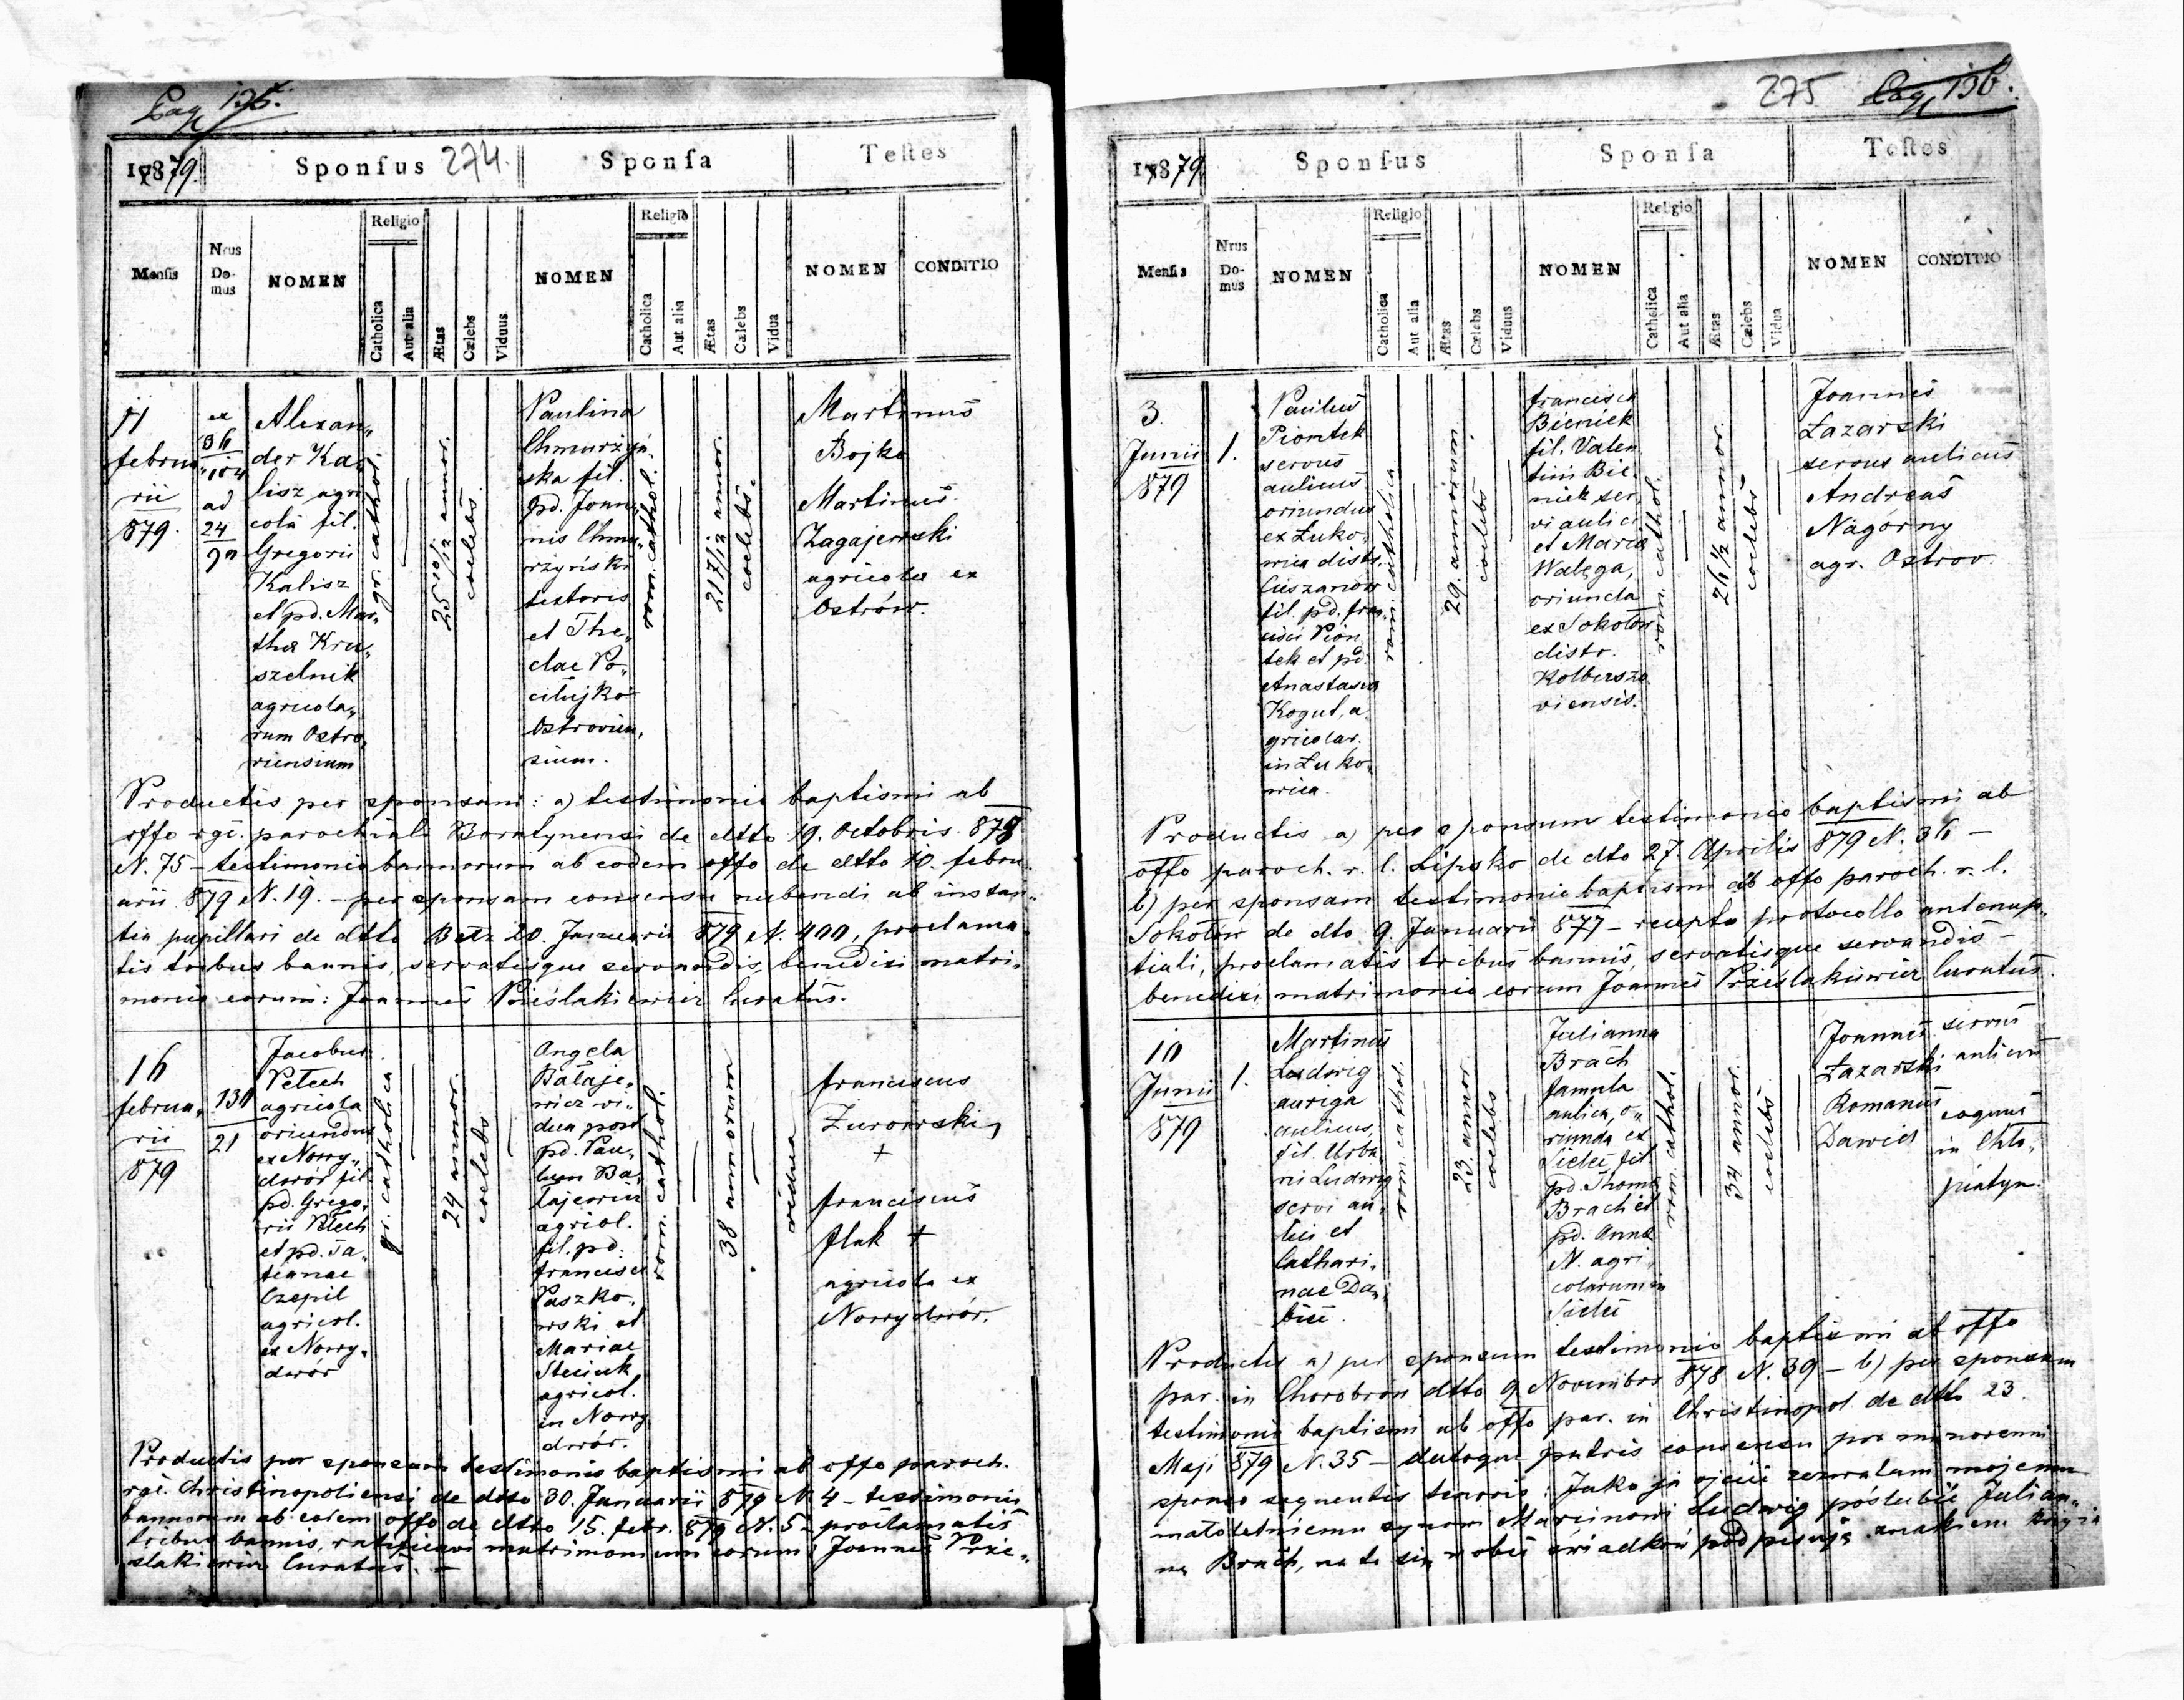 Pag 135.
1879.
Sponsus 274.
Sponsa
Testes
Mensis
Nrus Do-mus
NOMEN
Religio
Catholica
Aut alia
Ætas
Cælebs
Viduus
NOMEN
Religio
Catholica
Aut alia
Ætas
Cælebs
Vidua
NOMEN
CONDITIO
11
februa
rii
879.
ex
36
ad
24
Alexan„
der Ka„
lisz agri
cola fil.
Gregorii
Kalisz
et pd. Mar„
tha Kru„
szelnik
agricola„
rum Ostro„
viensium
gr. cathol.
25 10/12 annor.
coelebs
Paulina
Chmurzyń
ska fil.
pd. Joan
nis Chmu„
rzyński
textoris
et The„
clae Po„
ciłujko
Ostrovien„
sium.
rom. cathol.
21 7/12 annor.
coelebs
Martinus
Bojko
Martinus
Zagajewski
agricola ex
Ostrów.
Productis per sponsum: a) testimonio baptismi ab
offo rgr. parochiali Boratynensi de dtto 19. Octobris 878
N. 75 – testimonio bannorum ab eodem offo de dtto 10. febru„
arii 879 N. 19. – per sponsam consensu nubendi ab instan„
tia pupillari de dtto Bełz 20. Januarii 879 N. 400, proclama„
tis tribus bannis, servatisque servandis, benedixi matri„
monio eorum: Joannes Prześlakiewicz Curatus.
16
februa„
rii
879
130
21
Jacobus
Petech
agricola
oriundus
ex Nowy„
dwór fil.
pd. Grego„
rii Petech
et pd. Ta„
tianae
Czepil
agricol.
ex Nowy„
dwór
gr. catholica
24 annor.
coelebs
Angela
Bałaje„
wicz vi„
dua post
pd. Pau„
lum Ba„
łajewicz
agricol.
fil. pd.
francisci
Paszko„
wski et
Mariae
Steciuk
agricol.
in Nowy
dwór.
rom. cathol.
38 annorum
vidua
franciscus
Żurowski
+
franciscus
flak +
agricola ex
Nowydwór.
Productis per sponsum testimonio baptismi ab offo paroch.
rgr. Christinopoliensi de dtto 30. Januarii 879 N 4 – testimonio
bannorum ab eodem offo de dtto 15. febr. 879 N. 5 – proclamatis
tribus bannis, ratificavi matrimonium eorum: Joannes Prze„
slakiewicz Curatus. –
275 Pag 136.
1879
Sponsus
Sponsa
Testes
Mensis
Nrus Do-mus
NOMEN
Religio
Catholica
Aut alia
Ætas
Cælebs
Viduus
NOMEN
Religio
Catholica
Aut alia
Ætas
Cælebs
Vidua
NOMEN
CONDITIO
3.
Junii
879
1.
Paulus
Piontek
servus
aulicus
oriundus
ex Łuko„
wica distr.
Cieszanów
fil. pd. fran
cisci Pion
tek et pd.
Anastasia
Kogut, a
gricolar.
in Łuko„
wica.
rom. catholica
29. annorum.
coelebs
francisca
Bieniek
fil. Valen
tini Bie„
niek ser„
vi aulici
et Maria
Walega,
oriunda
ex Sokołów
distr.
Kolbuszo
viensis.
rom. cathol.
26 1/2 annor.
coelebs
Joannes
Łazarski
servus aulicus
Andreas
Nagórny
agr. Ostrov.
Productis a) per sponsum testimonio baptismi ab
offo paroch. r. l. Lipsko de dto 27. Aprilis 879 N. 36 –
b) per sponsam testimonio baptismi ab offo paroch. r. l.
Sokołów de dto 9. Januarii 877 – recepto protocollo antenup„
tiali, proclamatis tribus bannis, servatisque servandis –
benedixi matrimonio eorum Joannes Prześlakiewicz Curatus.
10
Junii
879
1.
Martinus
Ludwig
auriga
aulicus,
fil. Urba
ni Ludwig
servi au„
lici et
Cathari„
nae Da„
rom. cathol.
23. annor.
coelebs
Julianna
Brach
famula
aulica, o„
riunda ex
fil.
pd. Thoma
Brach et
pd. Anna
N. agri
colarum in
rom. cathol.
34 annor.
coelebs
Joannes
Łazarski
Romanus
Dawid
servus
aulicus
coquus
in Chło„
piatyn.
Productis a) per sponsum testimonio baptismi ab offo
par. in Chorobrów dtto 9 Novembris 878 N. 39 – b) per sponsam
testimonio baptismi ab offo par. in Christinopol de dtto 23.
Maji 879 N. 35 – datoque patris consensu pro minorenni
sponso sequentis tenoris: Jako ja ojciec zezwalam mojemu
małoletniemu synowi Marcinowi Ludwig poślubić Julian„
nę Brach, na to się w obec świadków podpisuję znakiem krzyża